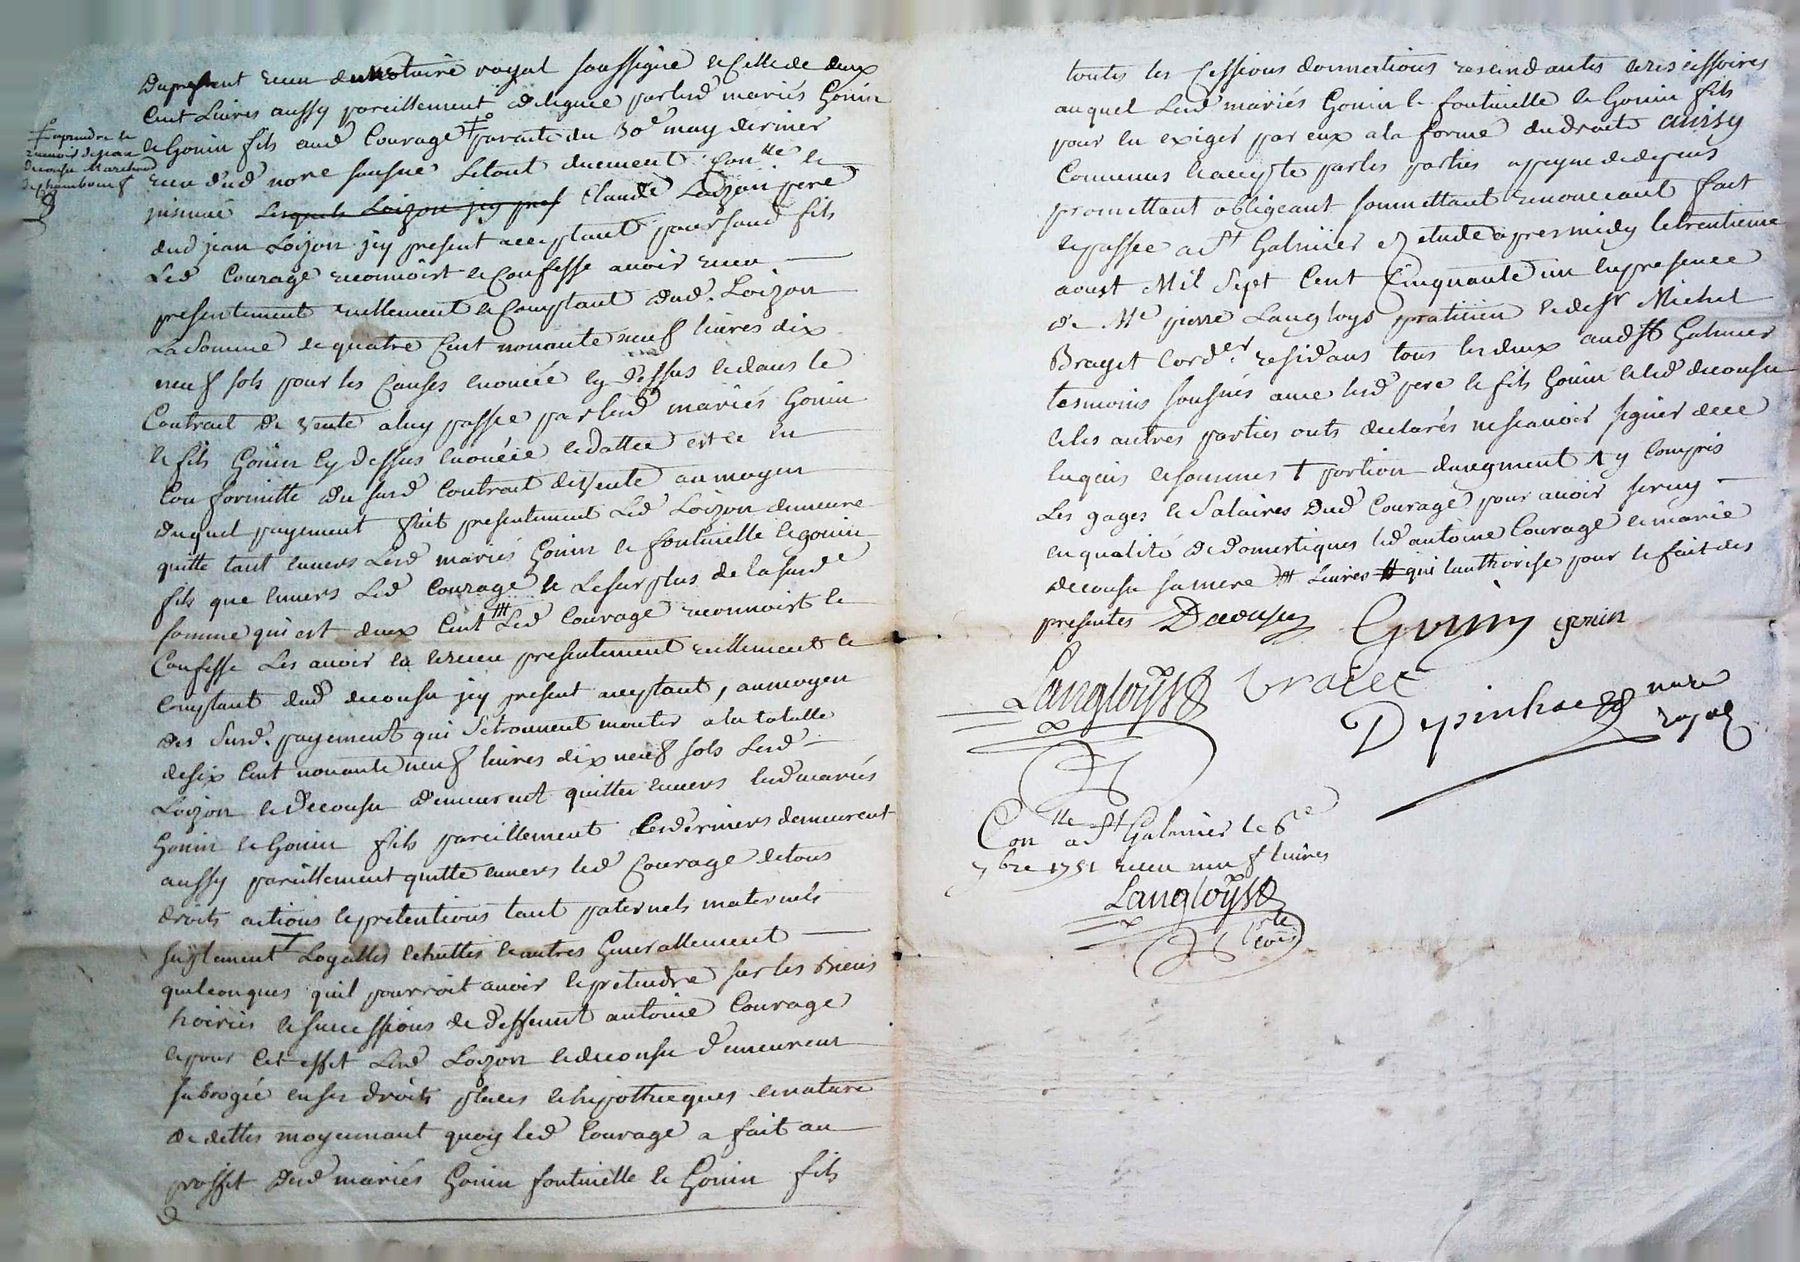 Dupresent recu du notaire royal soussigné et celle de deux
Cent Livres aussy pareillement deleguée par lesd mariés Gonin
et Gonin fils aud Courage par acte du 30e may dernier
recu dud nore soussné le tout duement Conllé et
jnsinué Lesquels Loizon jcy pnt Claude Loizon pere
dud jean Loizon jcy present acceptant pour sond fils
Led Courage reconnoist et Confesse avoir recu
presentement reellement et Comptant dud. Loizon
La Somme de quatre Cent nonante neuf livres dix
neuf sols pour les Causes enoncée cy dessus et dans le
Contract de vente a luy passée par lesd mariés Gonin
et fils Gonin cy dessus enoncée et dattée est ce en
Conformitté du susd Contract de vente au moyen
duquel payement fait presentement Led Loizon demeure
quitte tant envers Lesd mariés Gonin et fontinelle et gonin
fils que envers Led Courage et Le surplus de la susde
somme qui est deux Cent ₶ Led Courage reconnoist et
Confesse Les avoir eu et recu presentement reellement et
Comptant dud decousu jcy present acceptant, au moyen
des susd. payement qui se trouvent monter a la totalle
de six Cent nonante neuf livres dix neuf sols Lesd
Loizon et Decousu demeurent quittes envers lesd mariés
Gonin et Gonin fils pareillement Ces derniers demeurent
aussy pareillement quitte envers led Courage de tous
droits actions et pretentions tant paternels maternels
suplement Legalles et autres Generallement
quelconques quil pourroit avoir et pretendre sur les Biens
hoiries et successions de deffunt antoine Courage
et pour Cet effet Lesd Loizon et decousu demeurent
subrogée en ses droits places et hipotheques et nature
de dettes moyennant quoy led Courage a fait au
proffit dud mariés Gonin fontinelle et Gonin fils
a prendre le
recu de jean
decousu Marchand
de Chambœuf
toutes les Cessions donnations rescindantes et rescissoires
auquel Lesd mariés Gonin et fontinelle et Gonin fils
pour en exiger par eux a la forme du droit ainsy
Convenus et accepté par les parties a peyne de depens
promettant obligeant soumettant renoncant fait
et passée a St Galmier etude apres midy le trentieme
aoust Mil Sept Cent Cinquante un en presence
de Me pierre Langloys praticien et de Sr Michel
Brayet Corder residans tous les deux aud St Galmier
tesmoins sousnés avec lesd pere et fils Gonin et led decousu
et les autres parties onts declarés ne scavoir signer de ce
enquis et sommés portion daugment y Compris
Les gages et Salaires dud Courage pour avoir servy
en qualité de domestiques led antoine Courage et marie
decousu sa mere Livres qui lauthorise pour le fait des
presentes Decousu Gonin gonin
Langloys Braiet
Depinhac nore
royal
Conlle a St Galmier le 6e
7bre 1751 recu neuf livres
Langloys